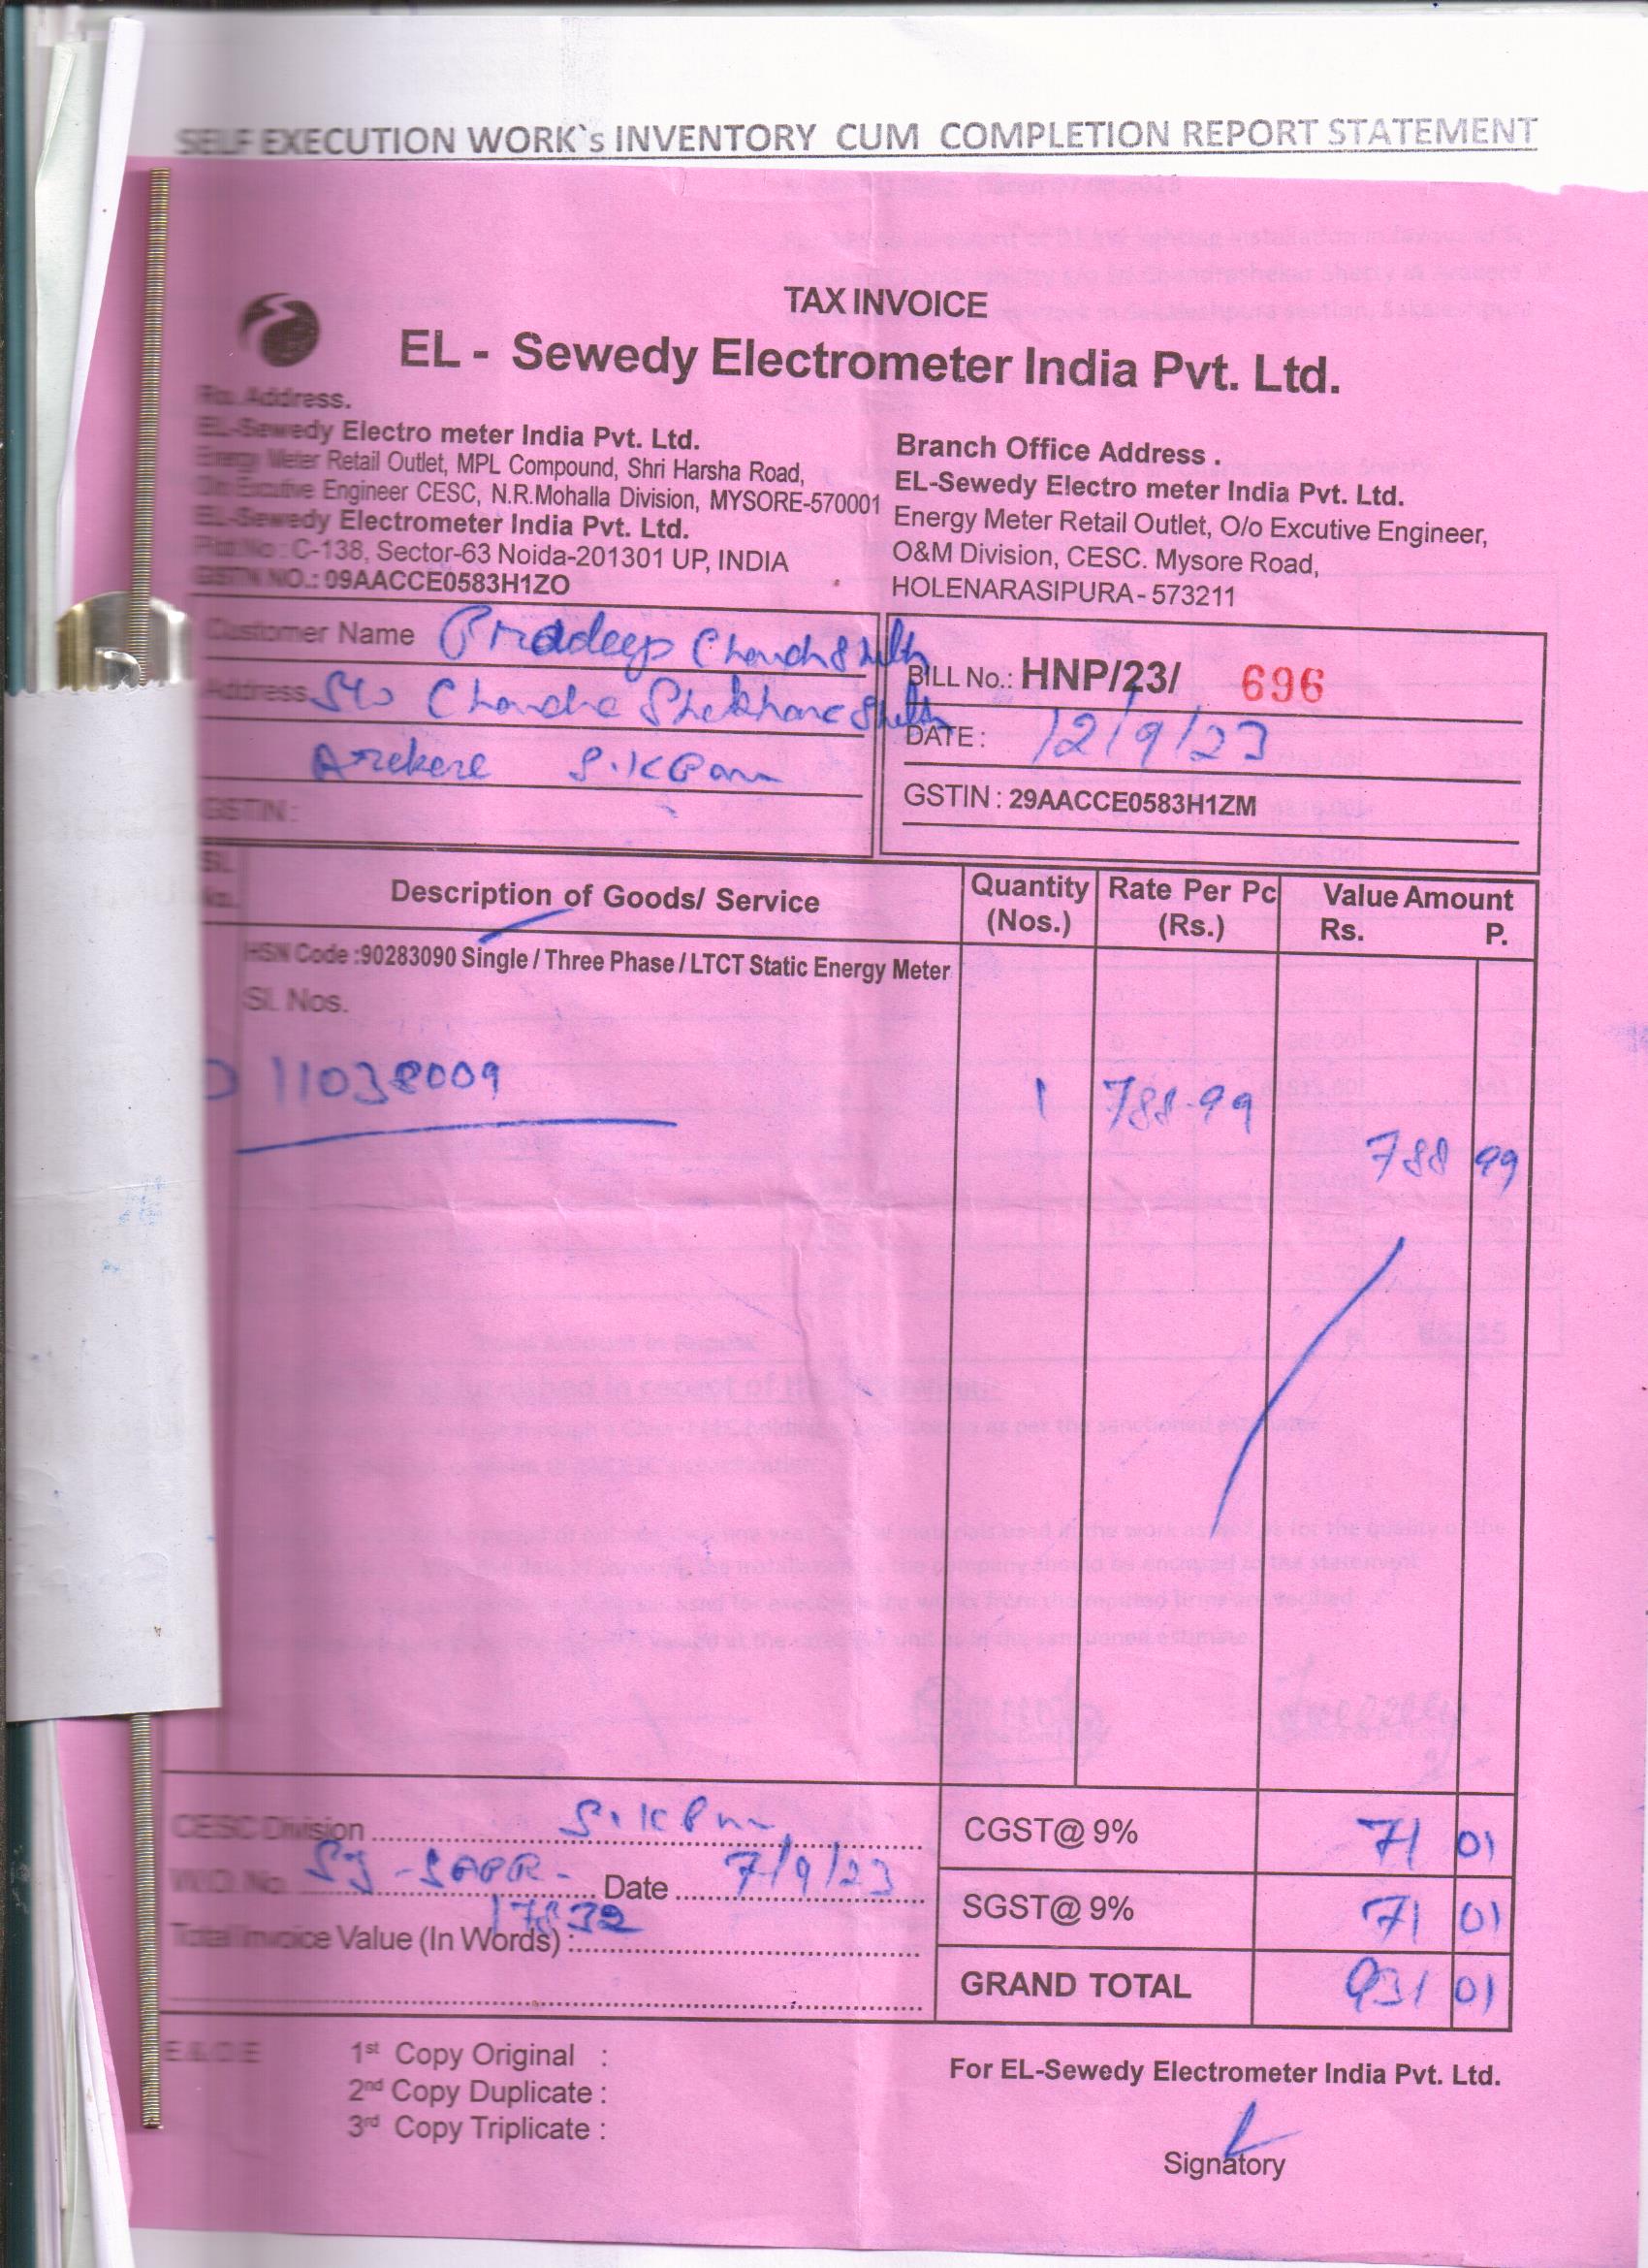 SELF EXECUTION WORK`s INVENTORY CUM COMPLETION REPORT STATEMENT
TAX INVOICE
EL - Sewedy Electrometer India Pvt. Ltd.
Address.
EL-Sewedy Electro meter India Pvt. Ltd.
Energy Meter Retail Outlet, MPL Compound, Shri Harsha Road,
O/o Excutive Engineer CESC, N.R.Mohalla Division, MYSORE-570001
EL-Sewedy Electrometer India Pvt. Ltd.
Plot No : C-138, Sector-63 Noida-201301 UP, INDIA
GSTN NO.: 09AACCE0583H1ZO
Branch Office Address .
EL-Sewedy Electro meter India Pvt. Ltd.
Energy Meter Retail Outlet, O/o Excutive Engineer,
O&M Division, CESC. Mysore Road,
HOLENARASIPURA- 573211
Customer Name Pradeep
Address S/o Chandra Shekhare Shetty
Arekere S.K Pura
GSTIN :
BILL No.: HNP/23/ 696
DATE : 12/9/23
GSTIN : 29AACCE0583H1ZM
Sl. No. Description of Goods/ Service Quantity (Nos.) Rate Per Pc (Rs.) Value Amount Rs. P.
HSN Code :90283090 Single / Three Phase / LTCT Static Energy Meter
Sl. Nos.
11038009 1 788-99 788 99
CESC Division S.K Pura
W.O. No. Sj -SAPR- 17832 Date 7/9/23
Total Invoice Value (In Words) :
CGST@ 9% 71 01
SGST@ 9% 71 01
GRAND TOTAL 931 01
E & O E
1st Copy Original :
2nd Copy Duplicate :
3rd Copy Triplicate :
For EL-Sewedy Electrometer India Pvt. Ltd.
Signatory